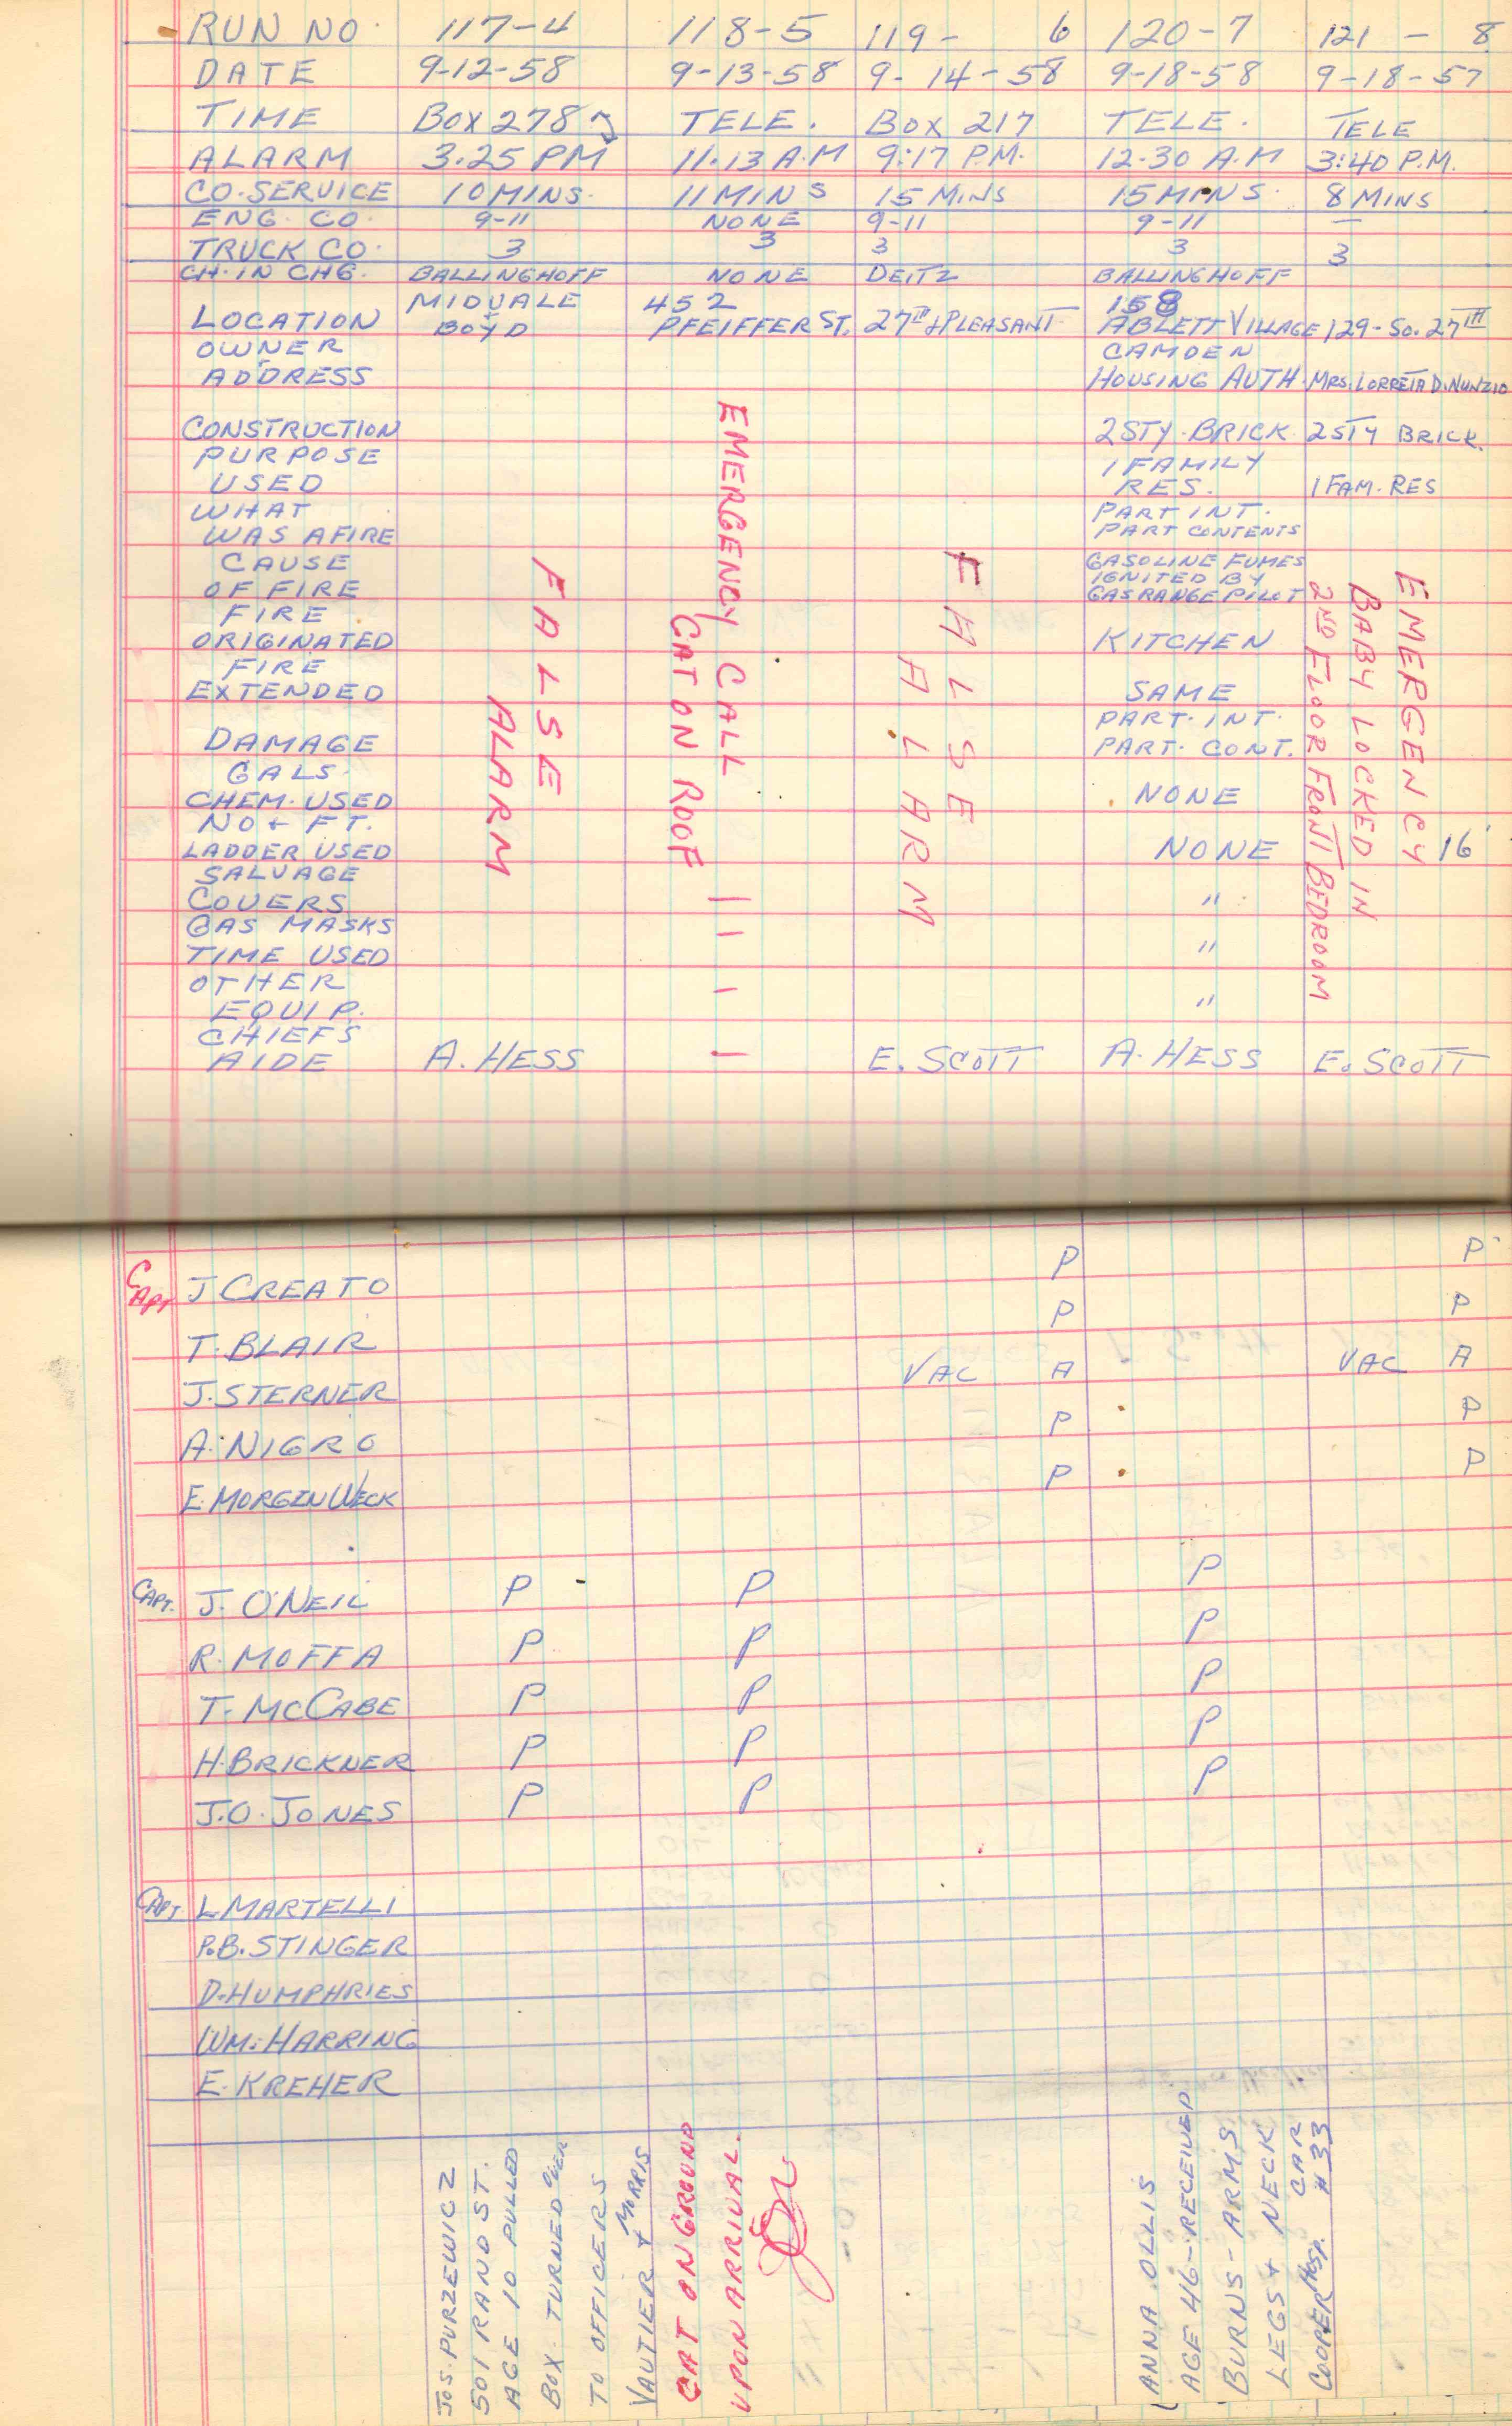 RUN NO. 117-4 118-5 119- 6 120-7 121 - 8
DATE 9-12-58 9-13-58 9-14-58 9-18-58 9-18-57
TIME BOX 278 TELE. BOX 217 TELE. TELE
ALARM 3.25 PM 11.13 A.M 9:17 P.M. 12.30 A.M 3:40 P.M.
CO. SERVICE 10 MINS. 11 MINS 15 MINS 15 MINS. 8 MINS
ENG. CO. 9-11 NONE 9-11 9-11 —
TRUCK CO. 3 3 3 3 3
CH. IN CHG. BALLINGHOFF NONE DEITZ BALLINGHOFF
MIDVALE 452 158
LOCATION + BOYD PFEIFFER ST. 27TH & PLEASANT ABLETT VILLAGE 129-SO. 27TH
OWNER CAMDEN
ADDRESS HOUSING AUTH. MRS. LORRETA D. NUNZIO
CONSTRUCTION 2 STY. BRICK 2 STY BRICK.
PURPOSE 1 FAMILY
USED RES. 1 FAM. RES
WHAT PART INT.
WAS AFIRE PART CONTENTS
CAUSE GASOLINE FUMES
OF FIRE IGNITED BY
GAS RANGE PILOT
FIRE
ORIGINATED KITCHEN
FIRE
EXTENDED SAME
PART. INT.
DAMAGE PART. CONT.
GALS.
CHEM. USED NONE
NO + FT.
LADDER USED NONE 16'
SALVAGE
COVERS "
GAS MASKS
TIME USED "
OTHER
EQUIP. "
CHIEFS
AIDE A. HESS E. SCOTT A. HESS E. SCOTT
FALSE
ALARM
EMERGENCY CALL
CAT ON ROOF
FALSE
ALARM
EMERGENCY
BABY LOCKED IN
2ND FLOOR FRONT BEDROOM
CAPT J CREATO P P
T. BLAIR P P
J. STERNER VAC A VAC A
A. NIGRO P P
E. MORGENWECK P P
CAPT. J. O'NEIL P P P
R. MOFFA P P P
T. McCABE P P P
H. BRICKNER P P P
J.O. JONES P P P
CAPT L MARTELLI
P.B. STINGER
D. HUMPHRIES
WM. HARRING
E. KREHER
JOS. PURZEWICZ
501 RAND ST.
AGE 10 PULLED
BOX. TURNED OVER
TO OFFICERS
VAUTIER & MORRIS
CAT ON GROUND
UPON ARRIVAL.
ANNA OLLIS
AGE 46 - RECEIVED
BURNS - ARMS
LEGS + NECK
COOPER HOSP. CAR # 33